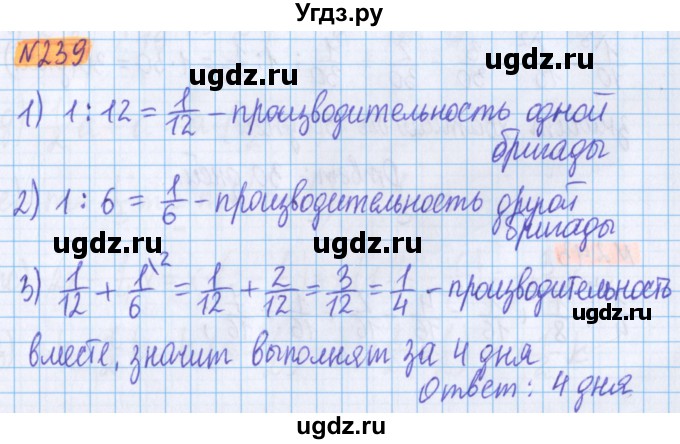 Угдз.ру
№239
1) 1 : 12 = 1/12 – производительность одной
бригады
2) 1 : 6 = 1/6 – производительность другой
бригады
3) 1/12 + 1/6\2 = 1/12 + 2/12 = 3/12 = 1/4 – производительность
вместе, значит выполнят за 4 дня
Ответ: 4 дня
ugdz.ru
ugdz.ru
ugdz.ru
ugdz.ru
ugdz.ru
ugdz.ru
ugdz.ru